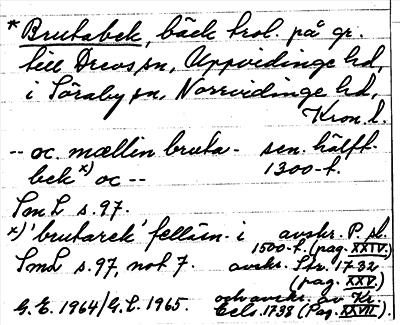 * Brutabek, bäck trol. på gr.
till Drevs sn, Uppvidinge hd,
i Söraby sn, Norrvidinge hd,
Kron. l.
-- oc mællin bruta- sen. hälft.
bek x) oc -- 1300-t.
SmL s. 97.
x) 'brutarek' felläsn. i avskr. P. sl.
1500-t. (pag. XXIV).
SmL s. 97, not 7. avskr. Str. 1732
(pag. XXV)
och avskr. av Kr.
G.E. 1964/G.L. 1965. Cels. 1738 (Pag. XXVII).